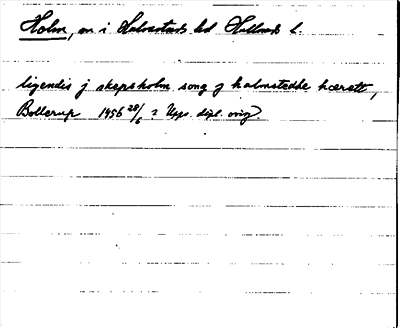 Holm, sn i Halmstads hd Hallands l.
ligendis j skepsholm song j halmstedhe hærett,
Bollerup 1456 28/6 2 Upps. dipl. orig.